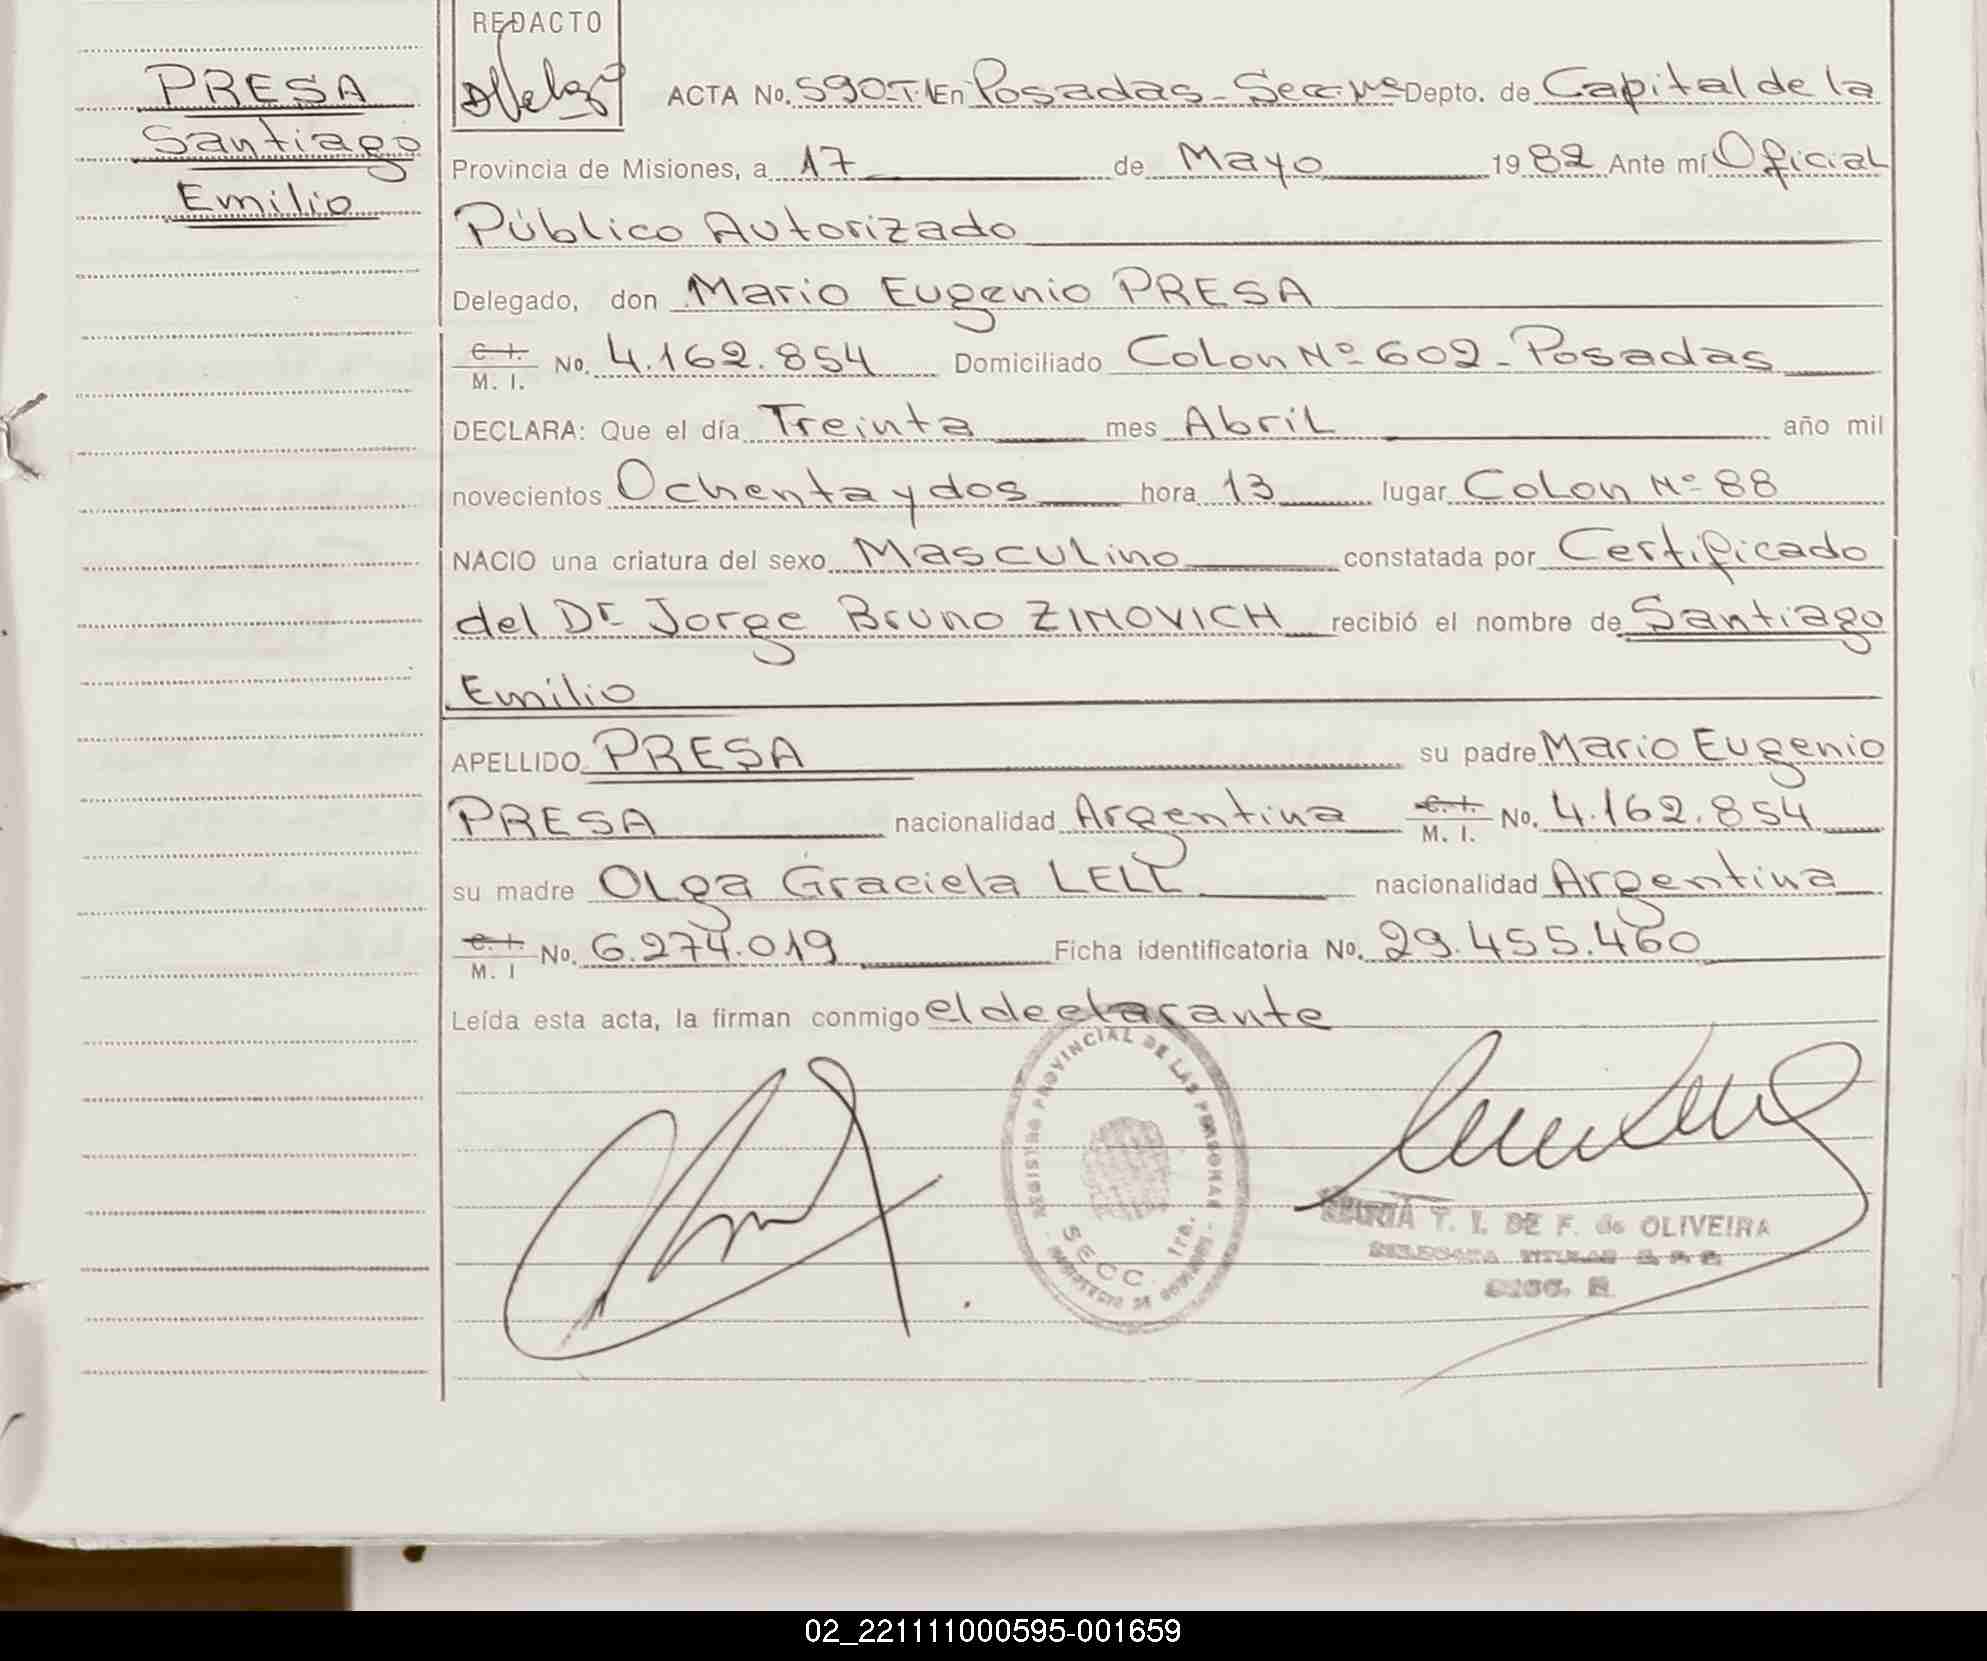 REDACTO
PRESA
Santiago
Emilio
ACTA No. 590-T.1 En Posadas - Secc. Depto. de Capital de la
Provincia de Misiones, a 17 de Mayo 1982 Ante mí Oficial
Público Autorizado
Delegado, don Mario Eugenio PRESA
C. I. / M. I. No. 4.162.854 Domiciliado Colon Nº 602 - Posadas
DECLARA: Que el día Treinta mes Abril año mil
novecientos Ochenta y dos hora 13 lugar Colon Nº 88
NACIO una criatura del sexo Masculino constatada por Certificado
del Dr Jorge Bruno ZIMOVICH recibió el nombre de Santiago
Emilio
APELLIDO PRESA su padre Mario Eugenio
PRESA nacionalidad Argentina C. I. / M. I. No. 4.162.854
su madre Olga Graciela LELL nacionalidad Argentina
C. I. / M. I No. 6.274.019 Ficha identificatoria No. 29.455.460
Leída esta acta, la firman conmigo el declarante
REGISTRO PROVINCIAL DE LAS PERSONAS
SECC. 1ra.
MINISTERIO DE GOBIERNO
MARIA T. I. DE F. de OLIVEIRA
DELEGADA TITULAR
SECC.
02_221111000595-001659